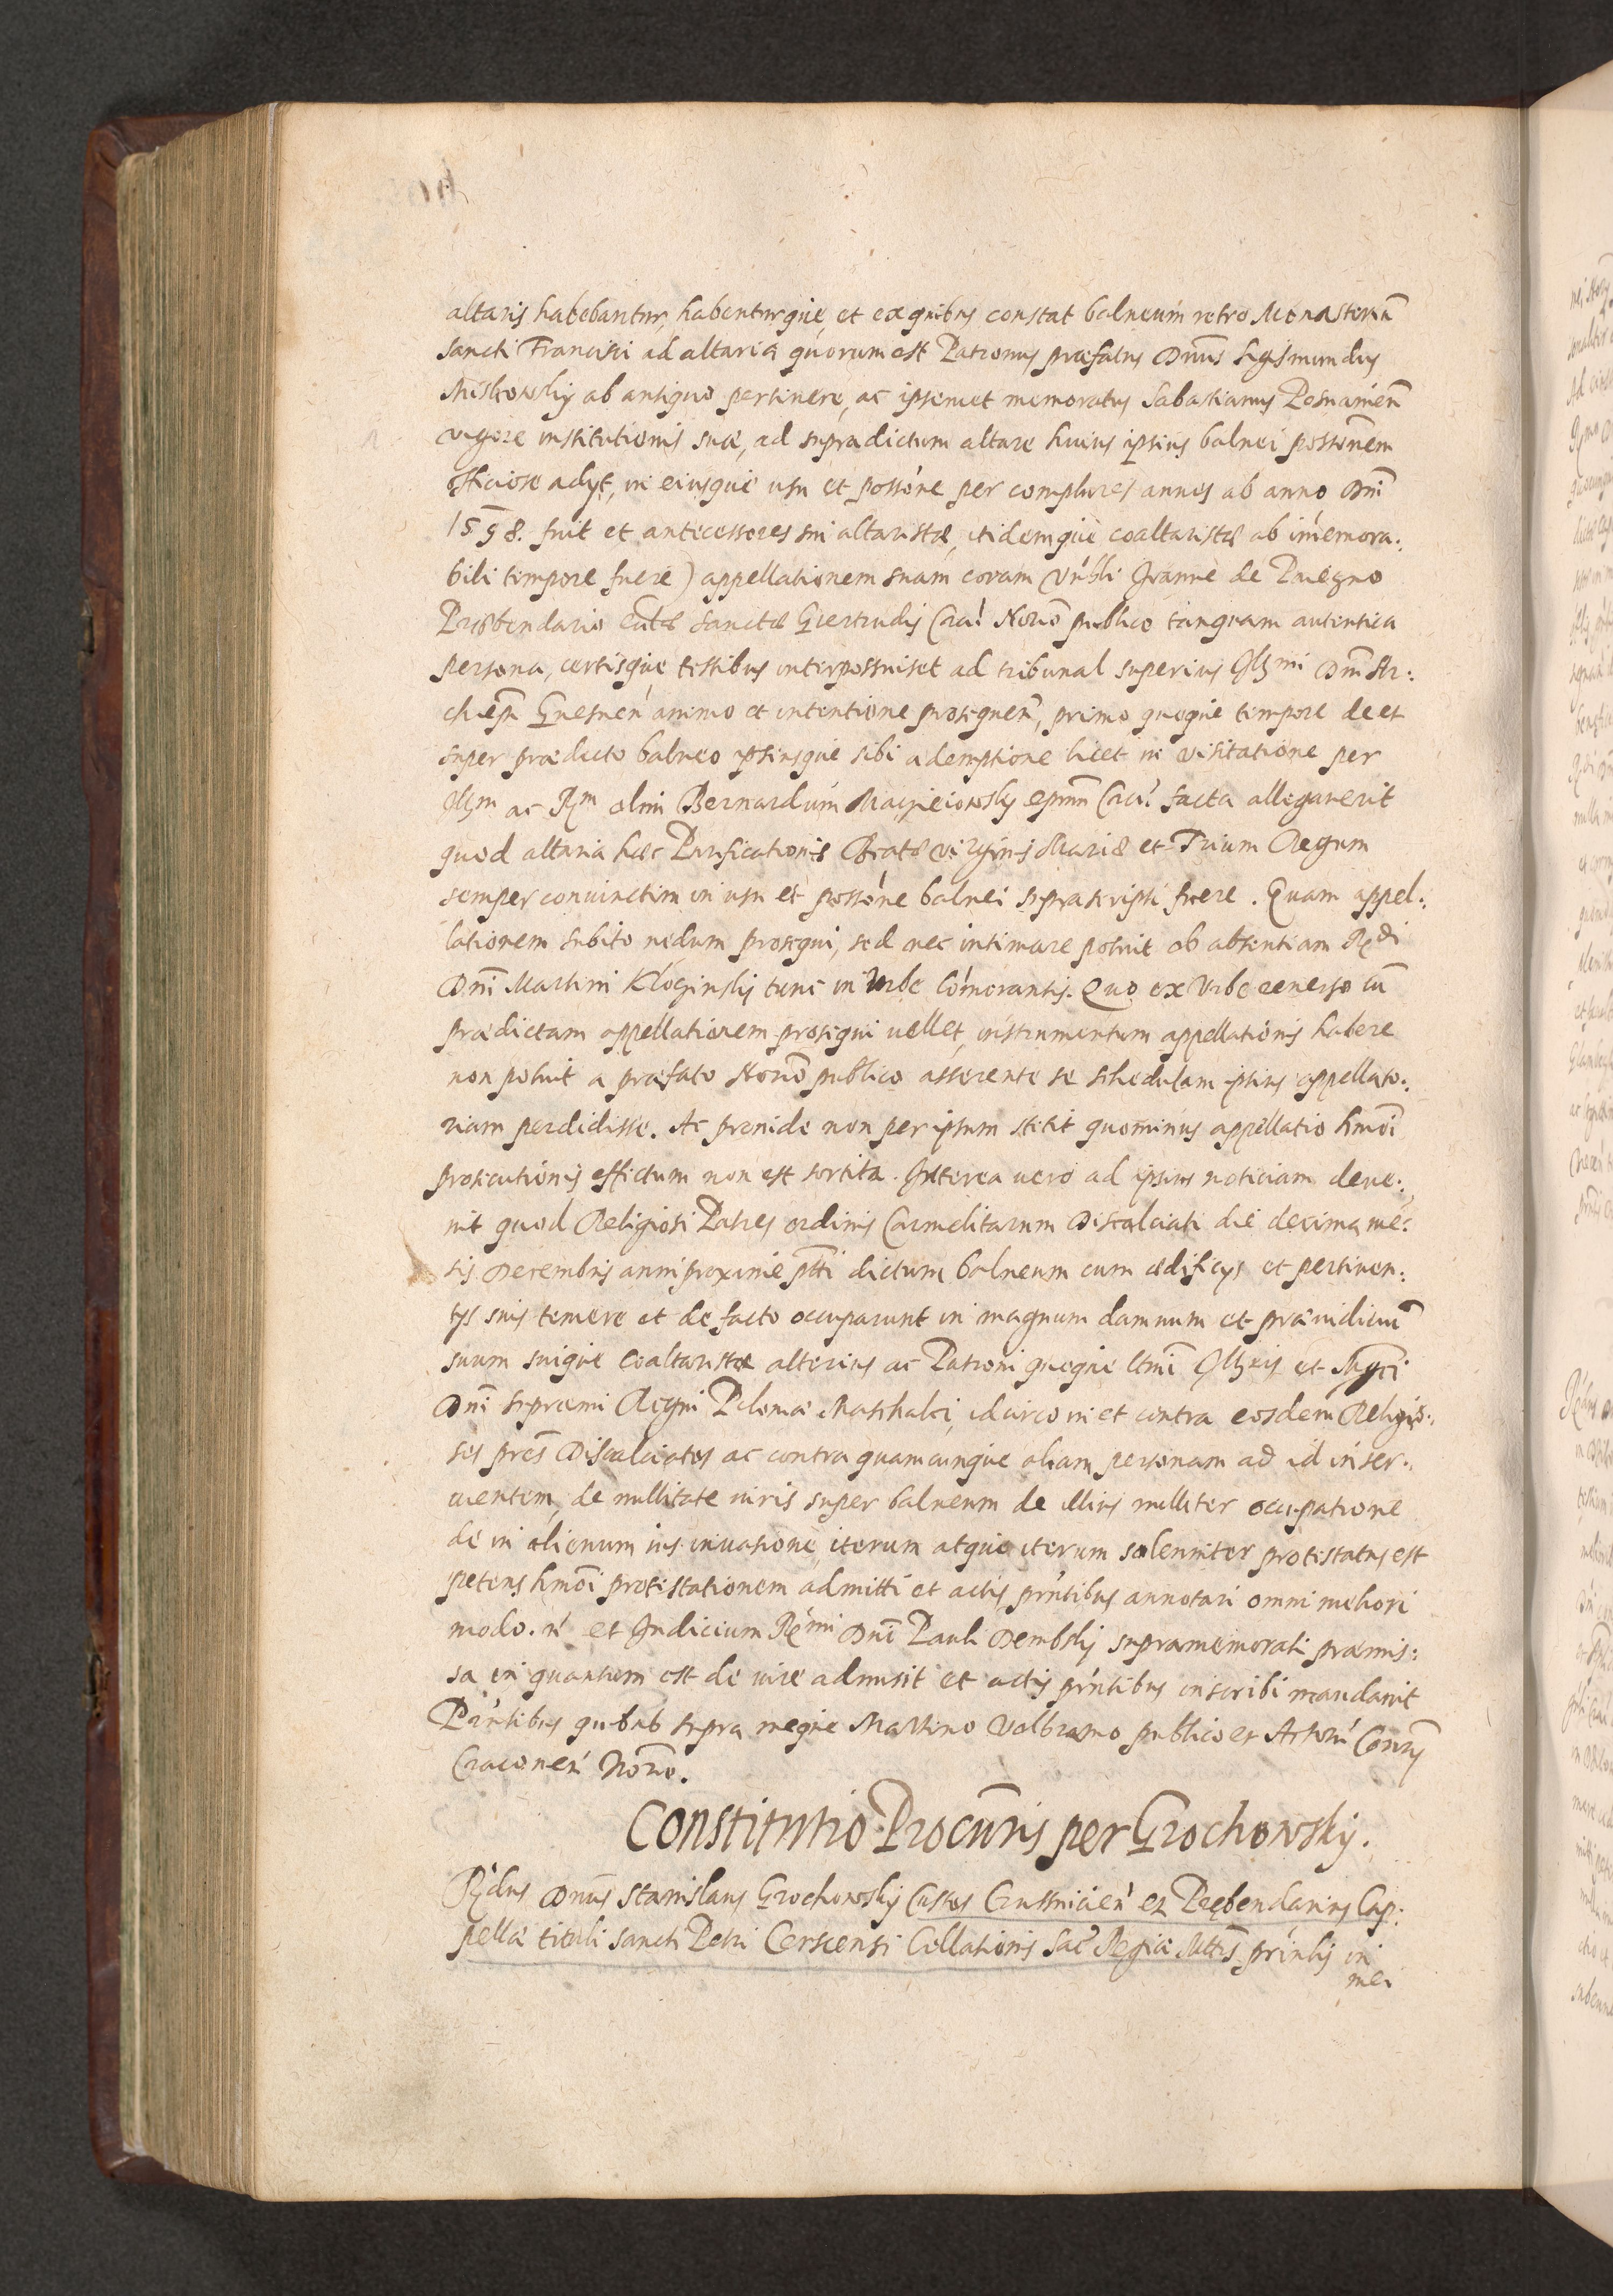 altaris habebantur, habenturque, et ex quibus constat balneum retro Monasteriũ
sancti Francisci ad altaria quorum est Patronus præfatus Dnũs Sigismundus
Miskowskij ab antiquo pertinere, ac ipsemet memoratus Sabastianus Posnamień
vigore institutionis suæ, ad supradictum altare huius ipsius balnei possonem
officiose adijt, in eiusque usu et possone per complures annos ab anno Dni
1598. fuit et antecessores sui altaristæ, itidemque coaltaristæ ab imemora:
bili tempore fuere) appellationem suam coram Joanne de
Præbendario sanctæ Gertrudis Crac: Norio publico tanquam autentica
persona, certisque testibus interpossuisset ad tribunal superius Illmi Dni Ar:
chiepi Gnesnen animo et intentione prosequen, primo quoque tempore de et
super prædicto balneo ipsiusque sibi ademptione licet in visitatione per
Illm ac Rm olim Bernardum Macieiowskij epum Crac: facta allegauerit
quod altaria hæc Purificationis Beatæ virginis Mariæ et Trium Regum
semper coniunctim in usu et possone balnei suprascripti fuere. Quam appel:
lationem subito nedum prosequi, sed nec intimare potuit ob absentiam Rdi
Dni Martini Kloginskij tunc in Urbe comorantis. Quo ex Urbe reuerso cũ
prædictam appellationem prosequi uellet, instrumentum appellationis habere
non potuit a præfato Norio publico asserente se schedulam ipsius appellato:
riam perdidisse. Ac proinde non per ipsum stetit quominus appellatio hmoi
prosecutionis effectum non est sortita. Interea uero ad ipsius noticiam deue:
nit quod Religiosi Patres ordinis Carmelitarum Discalciati die decima me:
sis Decembris anni proxime ptti dictum balneum cum ædificijs et pertinen:
tijs suis temere et de facto occuparunt in magnum damnum et præiudiciũ
suum suique coaltaristæ alterius ac Patroni quoque Illris et Magci
Dni supremi Regni Poloniæ Marschalci, idcirco in et contra eosdem Religio:
sos pres Discalciatos ac contra quamcunque aliam personam ad id inser:
uientem, de nullitate iuris super balneum de illius nulliter occupatione
de in alienum ius inuasione, iterum atque iterum solenniter protestatus est
petens hmoi protestationem admitti et actis pntibus annotari omni meliori
modo. et Judicium Rmi Dni Pauli Dembskij supramemorati præmis:
sa in quantum est de iure admisit et actis pntibus inscribi mandauit
Pntibus quibus supra meque Martino Volbramo publico et Actorũ Consrij
Cracouień Norio.
Constitutio Procuris per Grochowskij.
Rdus Dnus Stanislaus Grochowskij Custos Crussuicień et Præbendarius Cap:
pellæ tituli Sancti Petri Cerscensi Collationis Sac Regiæ Mttis, pntis in
me: